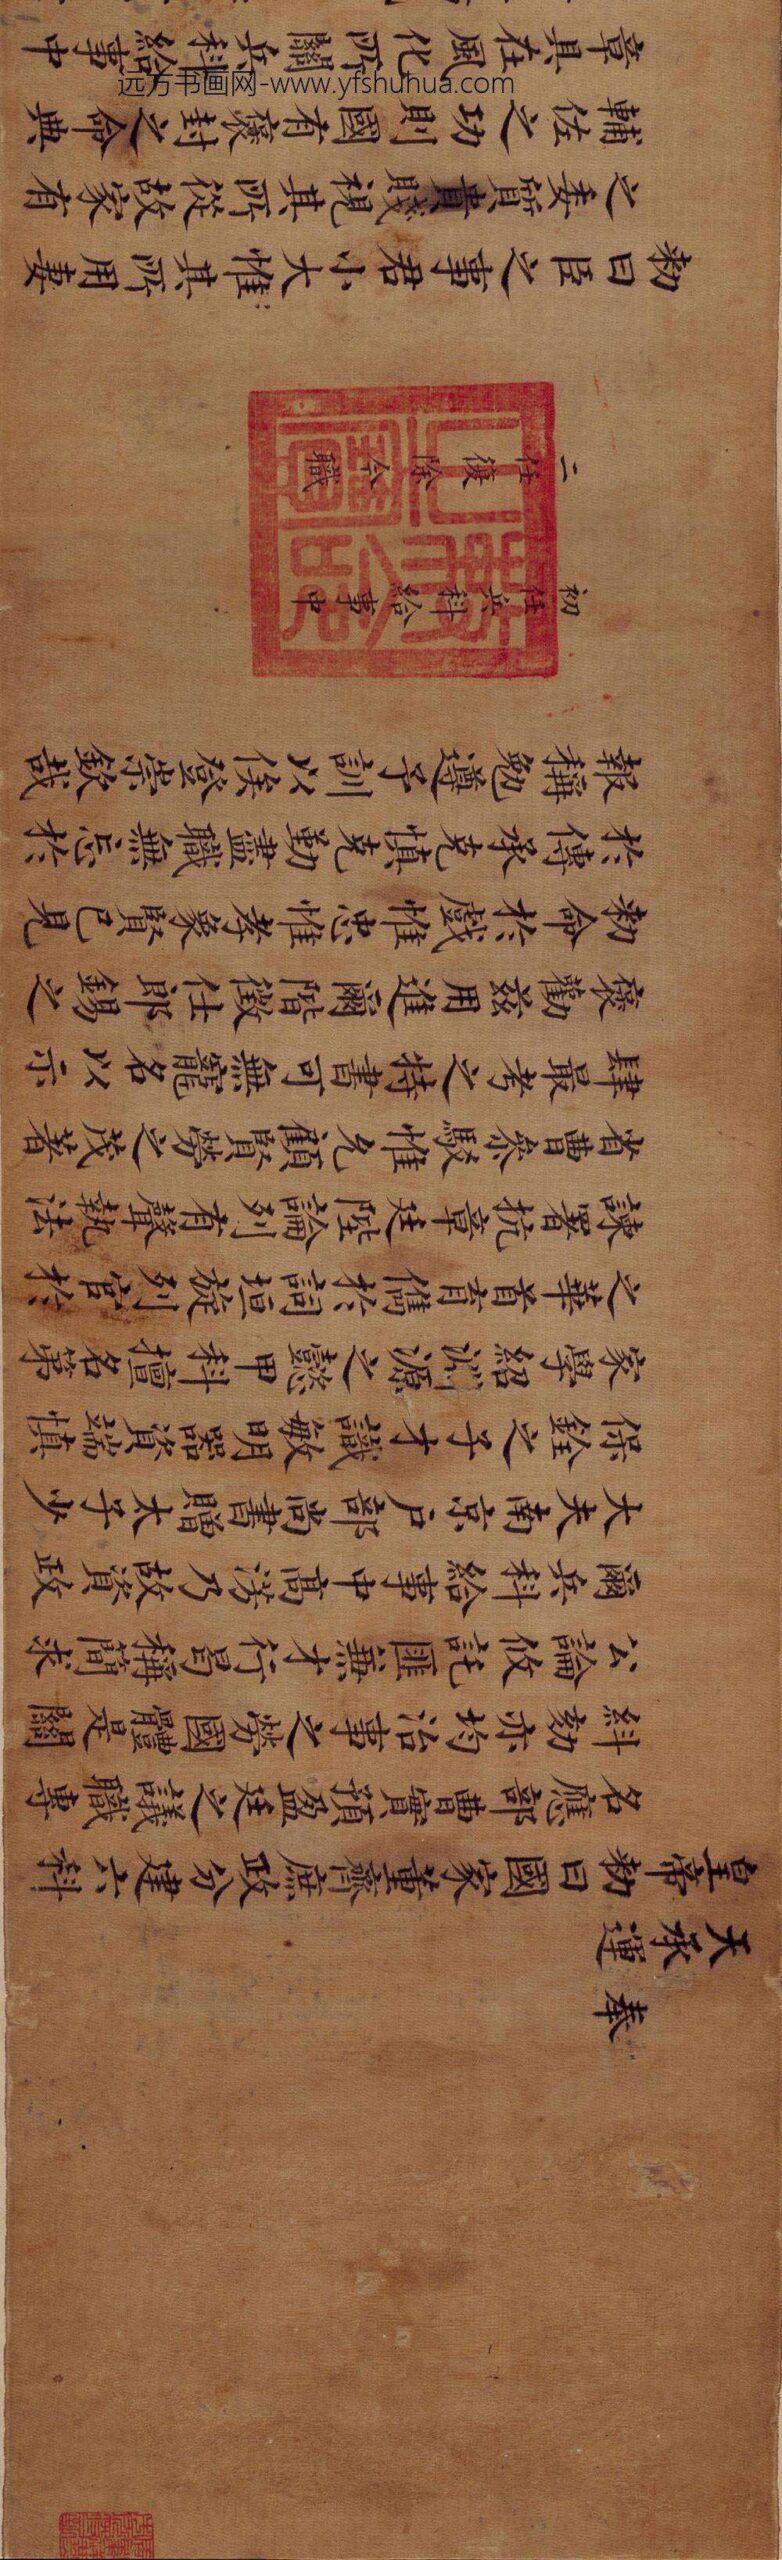 奉
天承運
皇帝勅曰國家董齊庶政分建六科
名應部曹實預盈廷之議職專
糾劾亦均治事之勞國體是關
公論攸託匪兼才行曷稱簡求
爾兵科給事中高乃故資政
大夫南京户部尚書贈太子少
保銓之子才識敏明器資端慎
家學紹淵源之懿甲科擅名第
之華首育儁於詞垣旋列官於
諫署抗章廷陛論列有聲執法
省曹參駁惟允顧賢勞之茂著
肆最考之特書可無寵名以示
褒勸茲用進爾階徵仕郎錫之
勅命於戲惟忠惟孝象賢已見
於傳承克慎克勤盡職無忘於
報稱勉遵予訓以俟登崇欽哉
初任兵科給事中
二任復除今職
勅曰臣之事君小大惟其所用妻
之委質貴賤視其所從故家有
輔佐之功則國有褒封之命典
章具在風化所關兵科給事中
远方书画网-www.yfshuhua.com